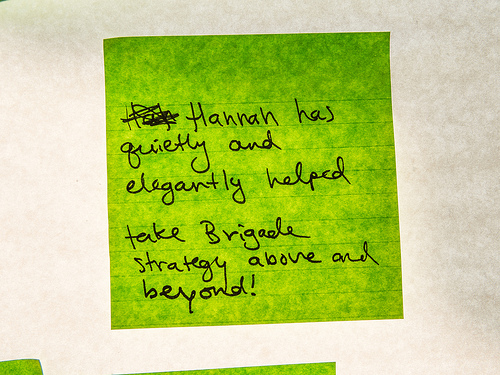 Hannah has
quietly and
elegantly helped
take Brigade
strategy above and
beyond!